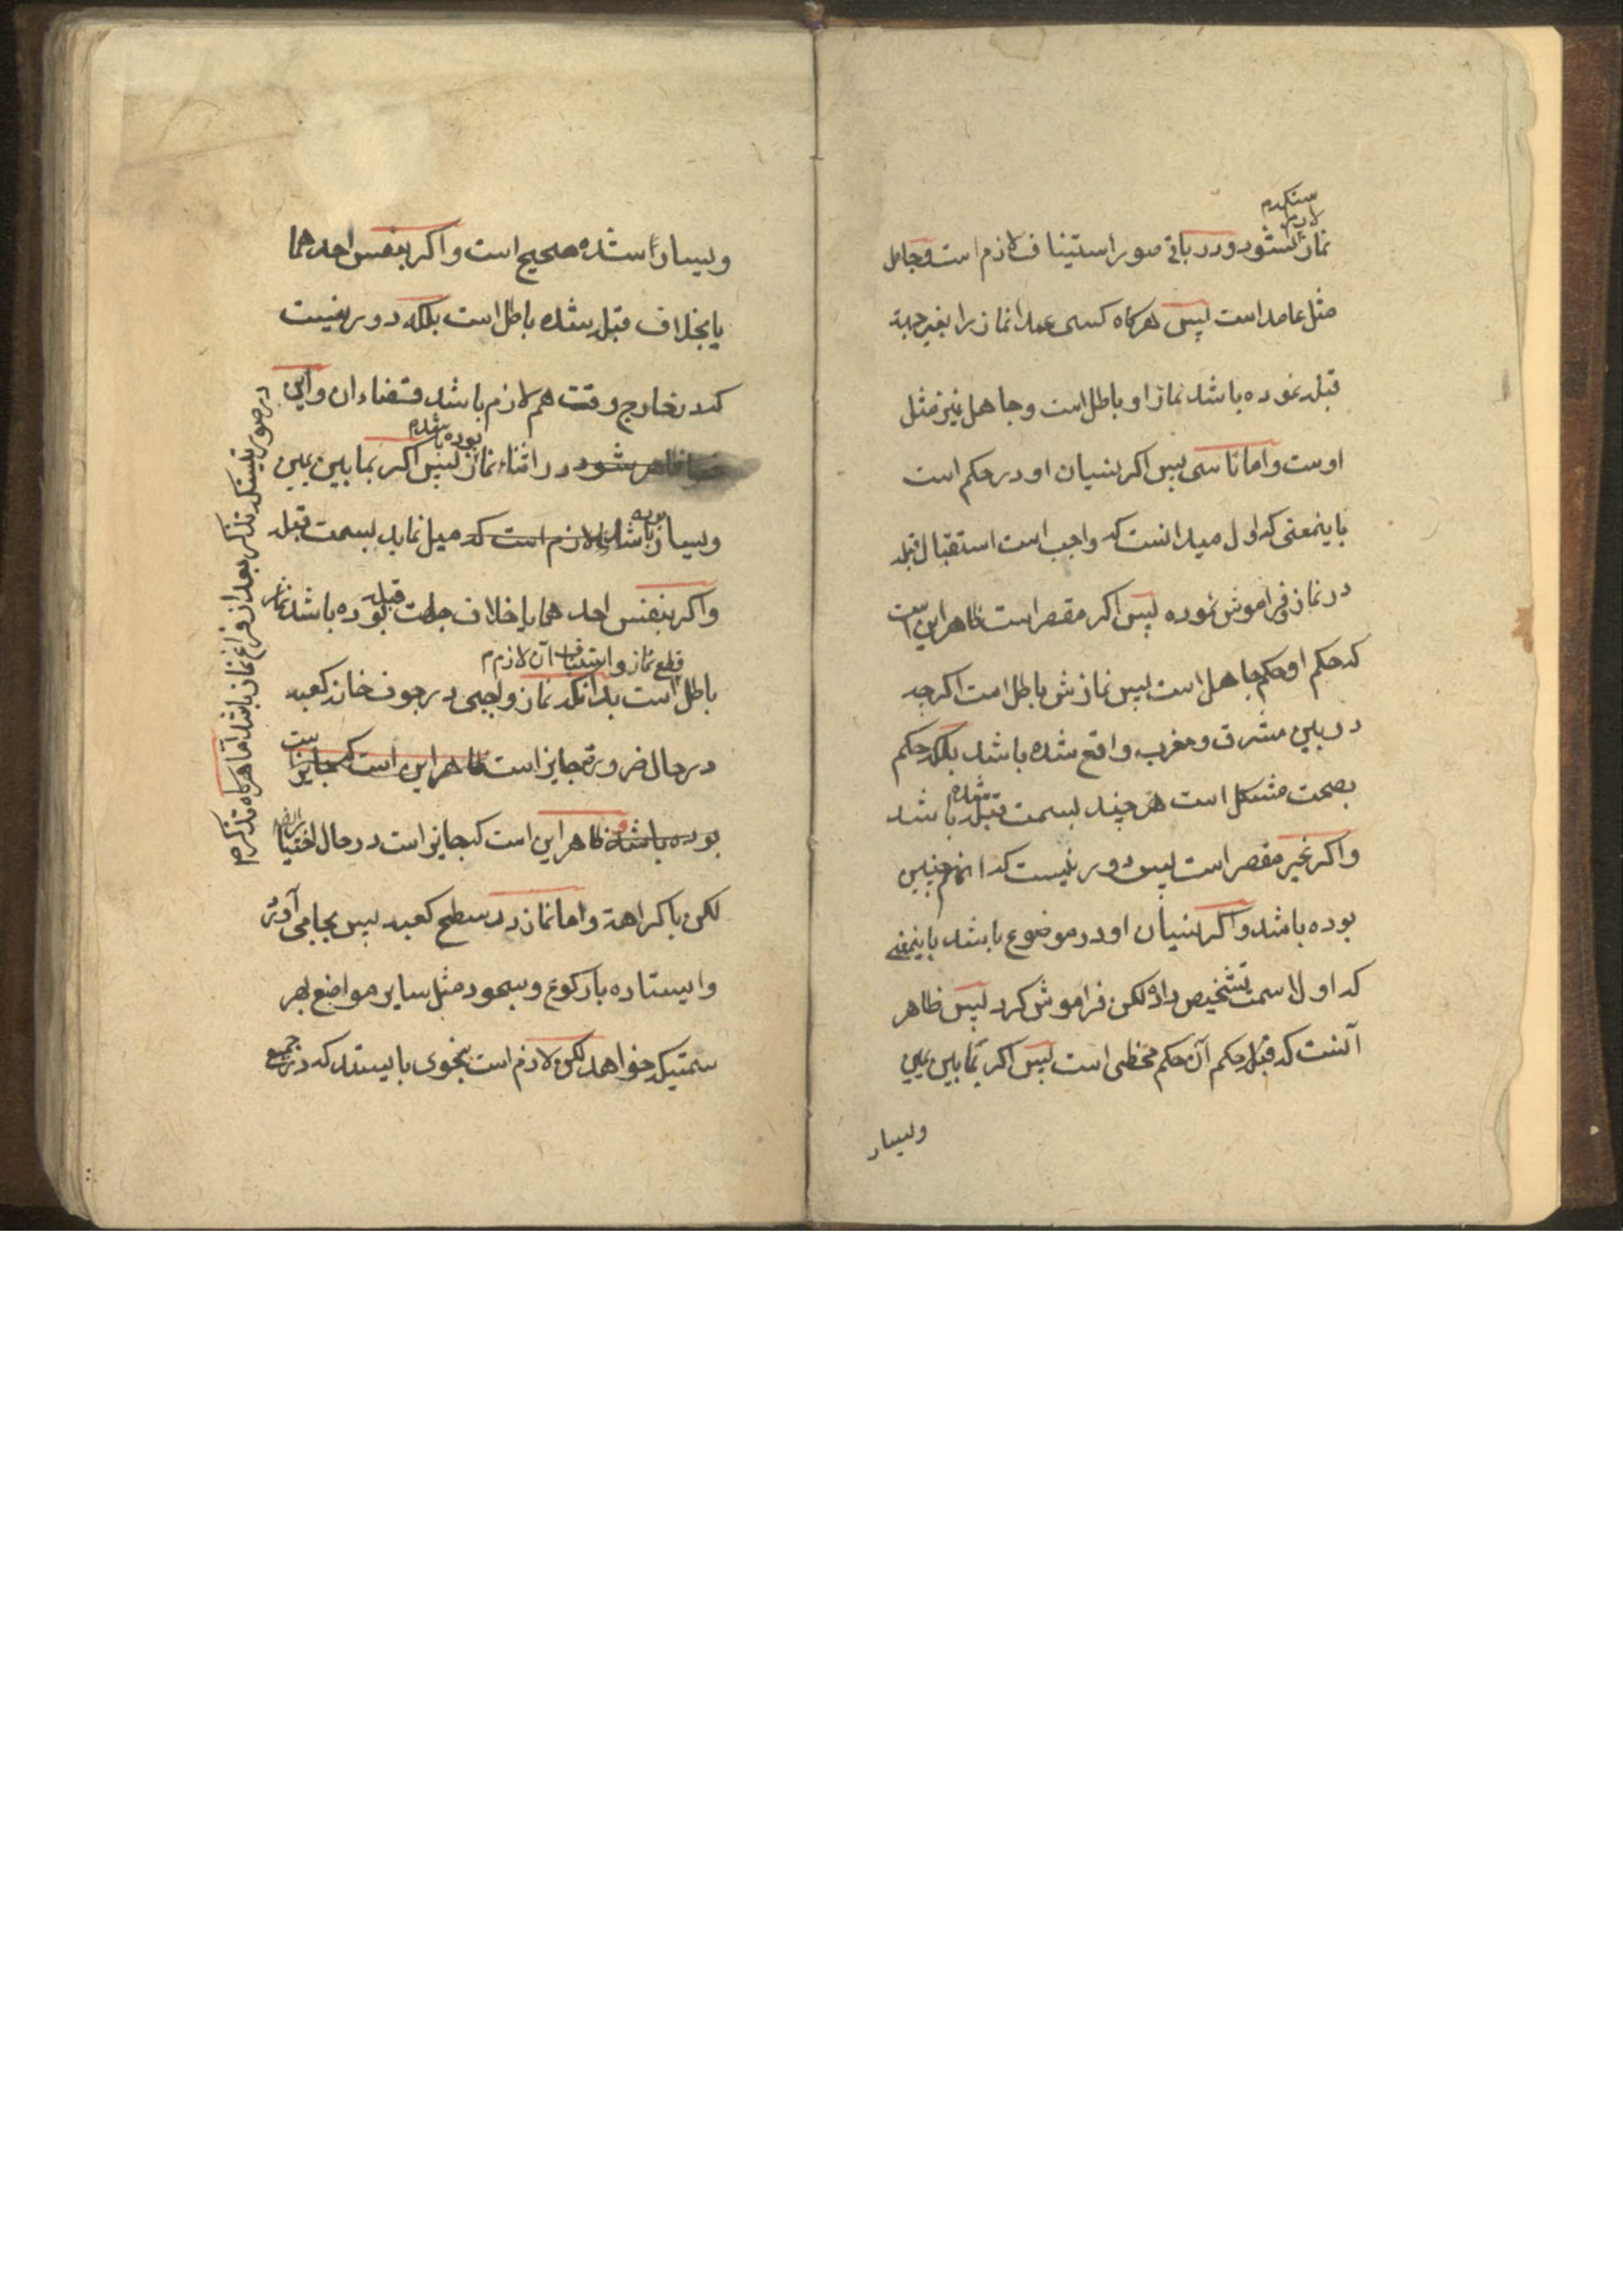 سنکدم
لازم
نماز نشود و در باقی صور استیناف لازم است و جاهل
مثل عامد است پس هرکاه کسی عمدا نماز را بغیر جهة
قبله نموده باشد نماز او باطل است و جاهل نیز مثل
اوست و اما ناسی پس اکر نسیان او در حکم است
باینمعنی که اول میدانست که واجب است استقبال قبله
در نماز و فراموش نموده پس اکر مقصر است ظاهر این است
که حکم او حکم جاهل است پس نمازش باطل است اکرچه
در بین مشرق و مغرب واقع شده باشد بلکه حکم
بصحت مشکل است هر چند بسمت قبله شده باشد
و اکر غیر مقصر است پس دور نیست که انهم چنین
بوده باشد و اکر نسیان او در موضوع باشد باینمعنی
که اولا سمت تشخیص داد لکن فراموش کرد پس ظاهر
آنست که قبله حکم آن حکم مخطی است پس اکر بمابین یمین
ویسار
ویسار است شده صحیح است و اکر بنفس احدهما
یا بخلاف قبله شده باطل است بلکه دور نیست
که در خارج وقت هم لازم باشد قضاء ان و این
بوده باشدم
ظاهر شود در اثناء نماز پس اکر بمابین یمین
ویسار بوده باشد لازم است که میل نماید بسمت قبله
و اکر بنفس احدهما یا خلاف جهت قبله بوده باشد نماز
قطع نماز و استیناف آن لازم م
باطل است بدانکه نماز واجبی در جوف خانه کعبه
در حال ضرورة جایز است ظاهر این است که جایز است
بوده باشد و ظاهر این است که جایز است در حال اختیار ایضا
لکن با کراهة و اما نماز در سطح کعبه پس بجا می آورد
و ایستاده با رکوع و سجود مثل سایر مواضع بهر
سمتیکه خواهد لکن لازم است بنحوی بایستد که در جمیع
در صورتیستکه تذکر بعد از فراغ نماز باشد اما هرکاه تذکر م